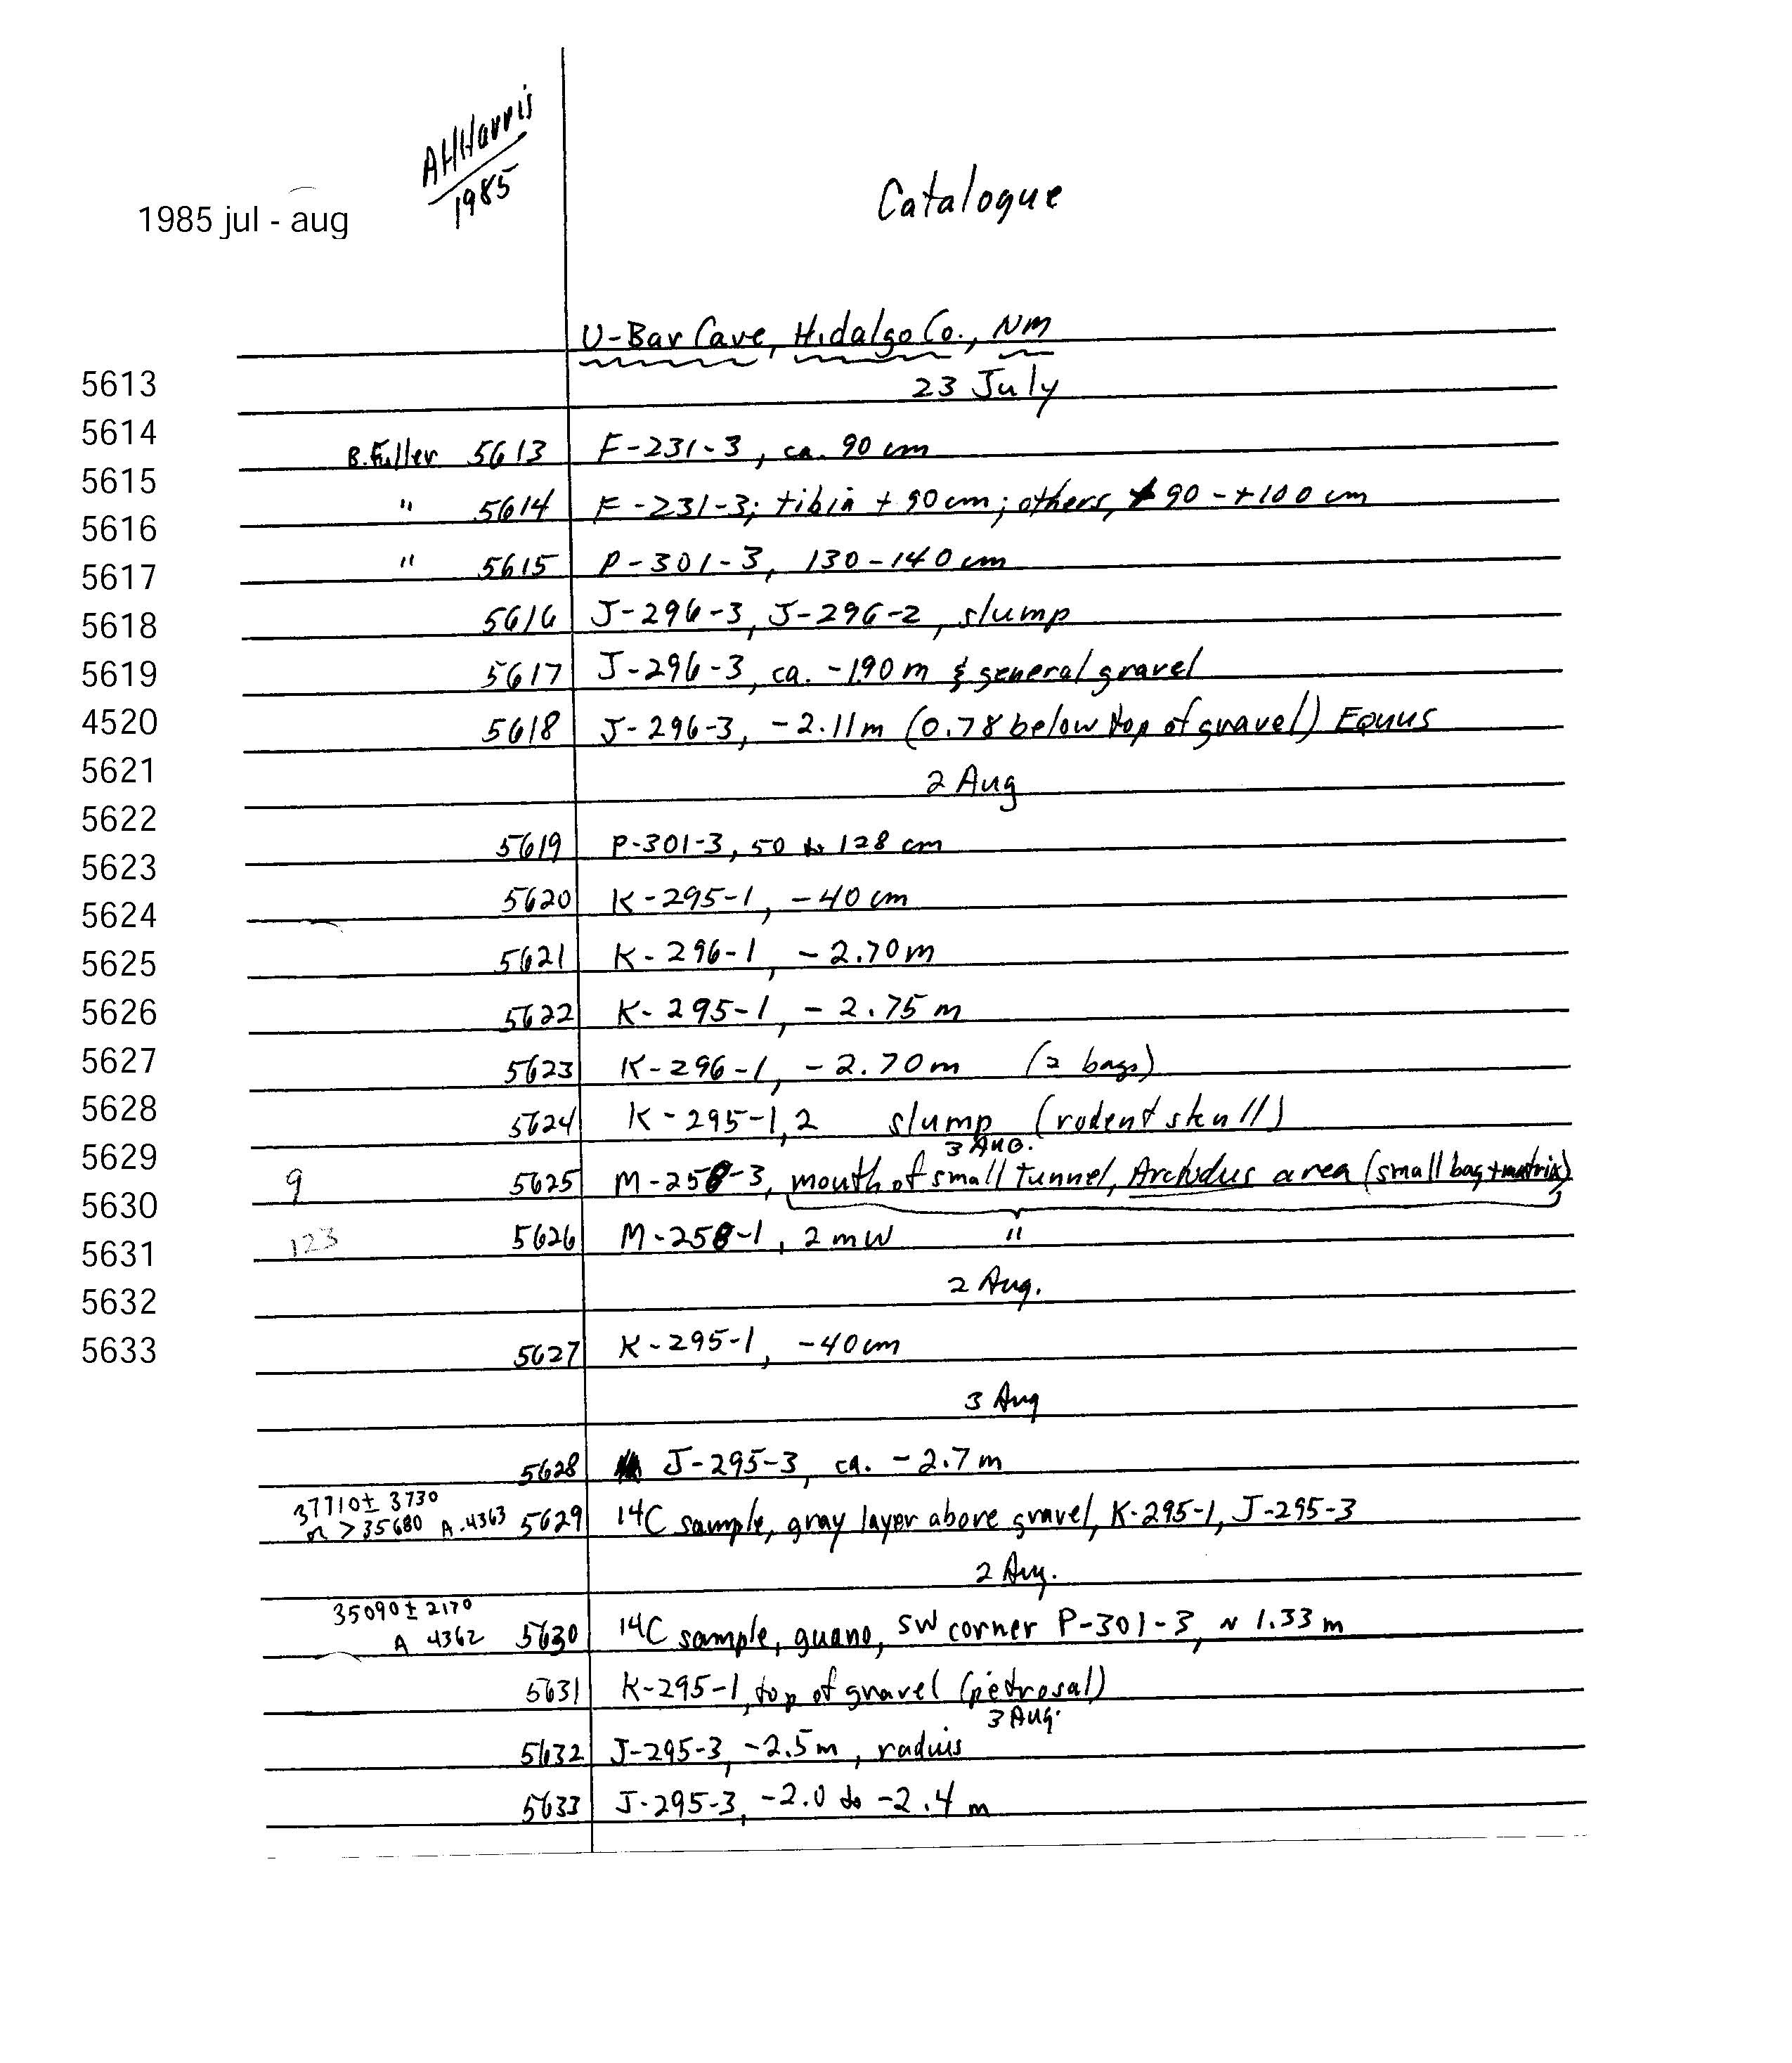 AHHarris
1985
1985 jul - aug
Catalogue
U-Bar Cave, Hidalgo Co., NM
23 July
5613
5614
5615
5616
5617
5618
5619
4520
5621
5622
5623
5624
5625
5626
5627
5628
5629
5630
5631
5632
5633
B. Fuller 5613 F-231-3, ca. 90 cm
" 5614 F-231-3; tibia + 90cm; others, 90 - +100 cm
" 5615 P-301-3, 130-140cm
5616 J-296-3, J-296-2, slump
5617 J-296-3, ca. -1.90 m & general gravel
5618 J-296-3, -2.11m (0.78 below top of gravel) Equus
2 Aug
5619 P-301-3, 50 to 128 cm
5620 K-295-1, -40cm
5621 K-296-1, -2.70m
5622 K-295-1, -2.75 m
5623 K-296-1, -2.70m (2 bags)
5624 K-295-1,2 slump (rodent skull)
3 AUG.
9 5625 M-258-3, mouth of small tunnel, area (small bag + matrix)
123 5626 M-258-1, 2 m W "
2 Aug.
5627 K-295-1, -40cm
3 Aug
5628 J-295-3, ca. -2.7 m
37710± 3730
or > 35680 A-4363 5629 14C sample, gray layer above gravel, K-295-1, J-295-3
2 Aug.
35090± 2170
A 4362 5630 14C sample, guano, SW corner P-301-3, ~ 1.33 m
5631 K-295-1, top of gravel (petrosal)
3 Aug.
5632 J-295-3, -2.5m, radius
5633 J-295-3, -2.0 to -2.4 m